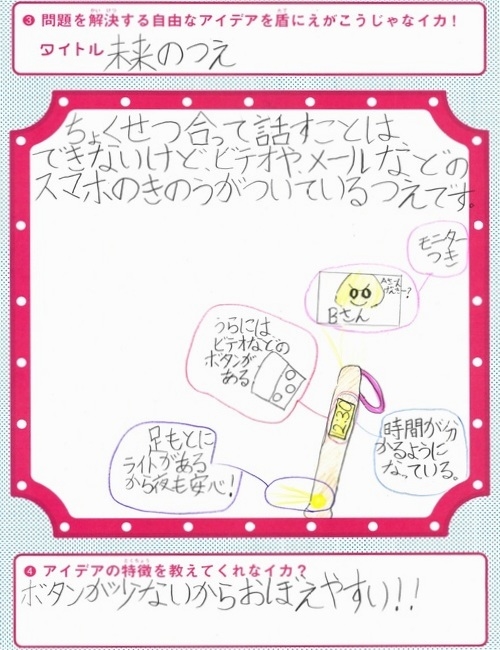 ❸ 問題を解決する自由なアイデアを盾にえがこうじゃなイカ！
タイトル 未来のつえ
ちょくせつ合って話すことは、
できないけど、ビデオや、メールなどの
スマホのきのうがついているつえです。
モニター
つき
Bさん
うらには
ビデオなどの
ボタンが
ある
12:30
時間が分
かるように
なっている。
足もとに
ライトがある
から夜も安心！
❹ アイデアの特徴を教えてくれなイカ？
ボタンが少ないからおぼえやすい！！